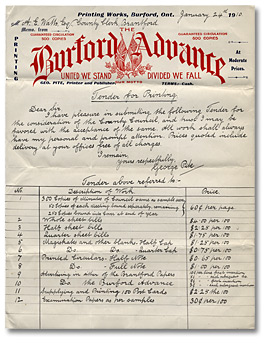 Printing Works, Burford, Ont. January 24th 1910
M A. E. Watts Esq. County Clerk Brantford
Memo. from
THE
GUARANTEED CIRCULATION
800 COPIES
GUARANTEED CIRCULATION
800 COPIES
PRINTING
Burford Advance
At
Moderate
Prices.
UNITED WE STAND DIVIDED WE FALL
GEO. PITE, Printer and Publisher
TERMS:-Cash.
Tender for Printing
Dear Sir,
I have pleasure in submitting the following Tender for
the consideration of the County Council, and trust I may be
favored with the acceptance of the same. All work shall always
have my personal and prompt attention. Prices quoted include
delivery at your offices free of all charges.
I remain
Yours respectfully,
George Pite
Tender above referred to:-
No. Description of Work Price
1 300 Copies of minutes of Council same as sample
50 copies of each
250 Copies bound in one at end of year 60¢ per page
2 Whole sheet bills
3 Half sheet bills $2.25 per 100
4 Quarter sheet bills $1.75 per 100
5 Magistrate and other blanks, Half Cap $1.25 per 100
6 Do Do Do Quarter Cap
7 Printed Circulars, Half Note
8 Do Full Note
9 Advertising in other of the Brantford Papers
10 Do the Burford Advance
11 Supplying and Printing 100 Post Cards $2.25
12 Examination Papers as per samples 30¢ per 100